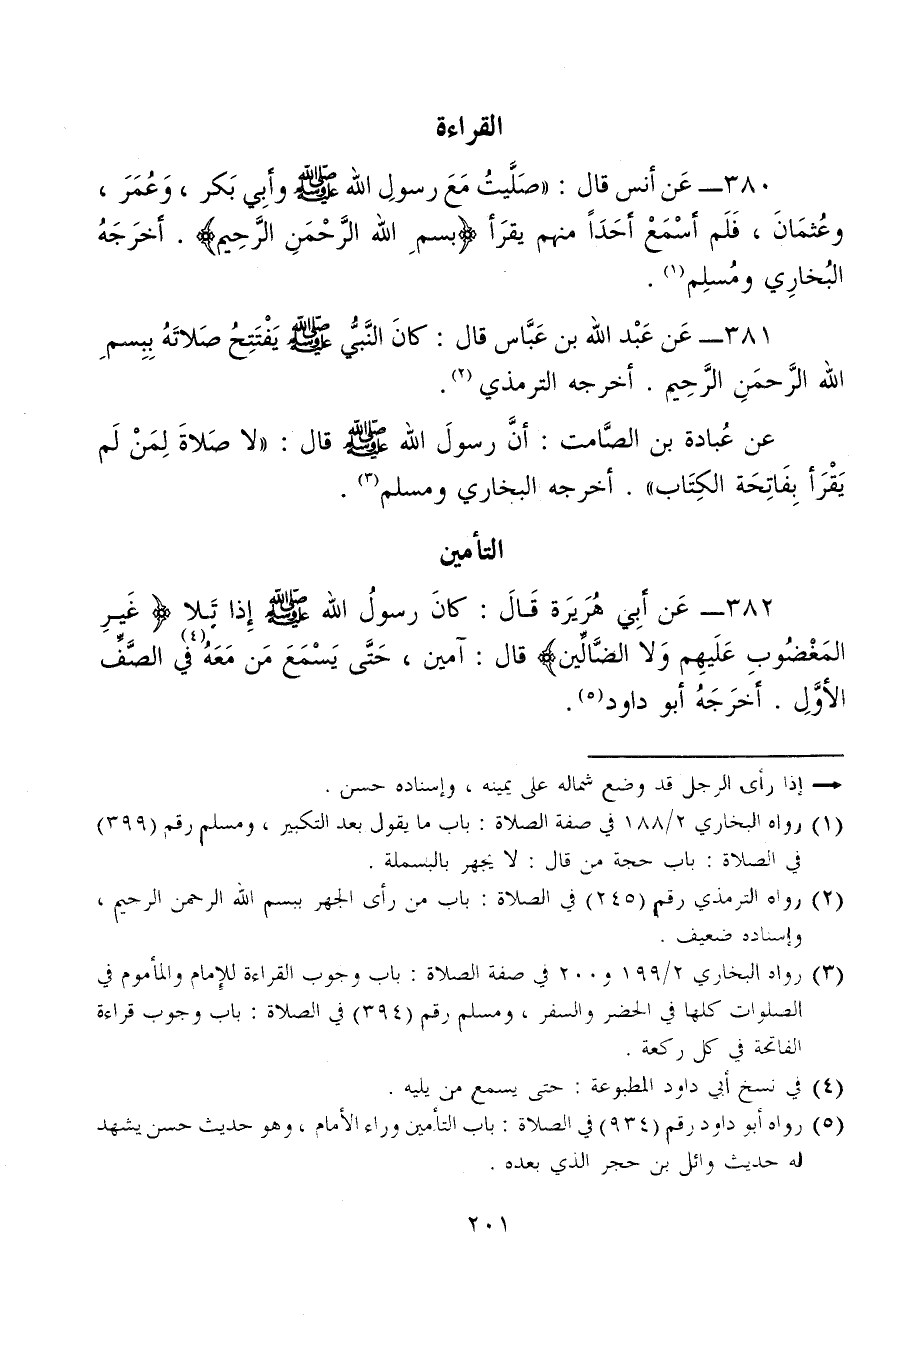 القراءة
٣٨٠ــ عَن أنس قال : «صَلَّيتُ مَعَ رسولِ الله ﷺ وأبِي بَكر ، وَعُمَرَ ،
وعُثمَانَ ، فَلَم أسْمَعْ أحَدَاً منهم يقرَأ ﴿بسمِ الله الرَّحْمَنِ الرَّحِيمِ﴾ . أخرَجَهُ
البُخارِي ومُسلِم(١) .
٣٨١ــ عَن عَبْد الله بن عَبَّاس قال : كانَ النَّبيُّ ﷺ يَفْتَتِحُ صَلاتَهُ بِبِسمِ
الله الرَّحمَنِ الرَّحِيمِ . أخرجه الترمذي (٢).
عن عُبادة بن الصَّامت : أنَّ رسولَ الله ﷺ قال : «لا صَلاةَ لِمَنْ لَم
يَقْرَأ بِفَاتِحَة الكِتَاب» . أخرجه البخاري ومسلم(٣) .
التأمين
٣٨٢ــ عَن أَبِي هُرَيرَة قَـالَ : كانَ رسولُ الله ﷺ إِذا تَـلا ﴿ غَيرِ
المَغْضُوبِ عَلَيهِم وَلا الضَّالِّين﴾ قال : آمين ، حَتَّى يَسْمَعَ مَن مَعَهُ(٤) في الصَّفِّ
الأوَّلِ . أخرَجَهُ أبو داود(٥).
← إذا رأى الرجل قد وضع شماله على يمينه ، وإسناده حسن .
(١) رواه البخاري ١٨٨/٢ في صفة الصلاة : باب ما يقول بعد التكبير ، ومسلم رقم (٣٩٩)
في الصلاة : باب حجة من قال : لا يجهر بالبسملة .
(٢) رواه الترمذي رقم (٢٤٥) في الصلاة : باب من رأى الجهر ببسم الله الرحمن الرحيم ،
وإسناده ضعيف .
(٣) رواه البخاري ١٩٩/٢ و٢٠٠ في صفة الصلاة : باب وجوب القراءة للإمام والمأموم في
الصلوات كلها في الحضر والسفر ، ومسلم رقم (٣٩٤) في الصلاة : باب وجوب قراءة
الفاتحة في كل ركعة .
(٤) في نسخ أبي داود المطبوعة : حتى يسمع من يليه .
(٥) رواه أبو داود رقم (٩٣٤) في الصلاة : باب التأمين وراء الأمام ، وهو حديث حسن يشهد
له حديث وائل بن حجر الذي بعده .
٢٠١